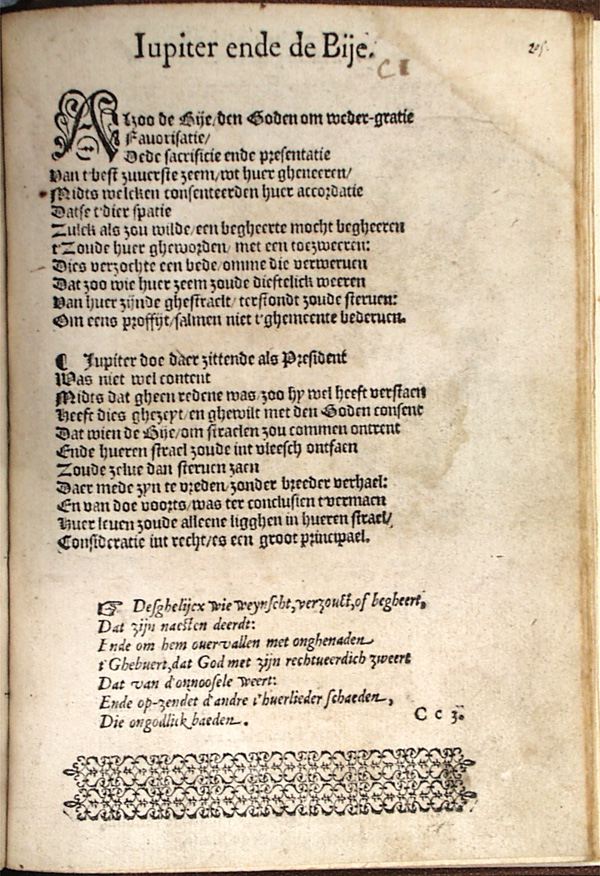 Iupiter ende de Bije.
C1
Alzoo de Bije/den Goden om weder-gratie
Favorisatie/
Dede sacrificie ende presentatie
Van t'best zuuerste zeem/wt huer gheneeren/
Midts welcken consenteerden huer accordatie
Datse t'dier spatie
Zulck als zou wilde/een begheerte mocht begheeren
t'Zoude huer gheworden/met een toezweeren:
Dies verzochte een bede/omme die verweruen
Dat zoo wie huer zeem zoude dieftelick weeren
Van huer zijnde ghestraelt/terstondt zoude steruen:
Om eens proffijt/salmen niet t'ghemeente bederuen.
¶ Jupiter doe daer zittende als President
Was niet wel content
Midts dat gheen redene was/zoo hy wel heeft verstaen
Heeft dies ghezeyt/en ghewilt met den Goden consent
Dat wien de Bije/om straelen zou commen ontrent
Ende hueren strael zoude int vleesch ontfaen
Zoude zelue dan steruen zaen
Daer mede zyn te vreden/zonder breeder verhael:
En van doe voorts/was ter conclusien t'vermaen
Huer leuen zoude alleene ligghen in hueren strael/
Consideratie int recht/es een groot principael.
☞ Desghelijcx wie weynscht,verzouct,of begheert,
Dat zijn naesten deerdt:
Ende om hem ouervallen met onghenaden
t'Ghebuert,dat God met zijn rechtueerdich zweert
Dat van d'onnoosele weert:
Ende op-zendet d'andre t'huerlieder schaeden,
Die ongodlick baeden.
Cc 3.